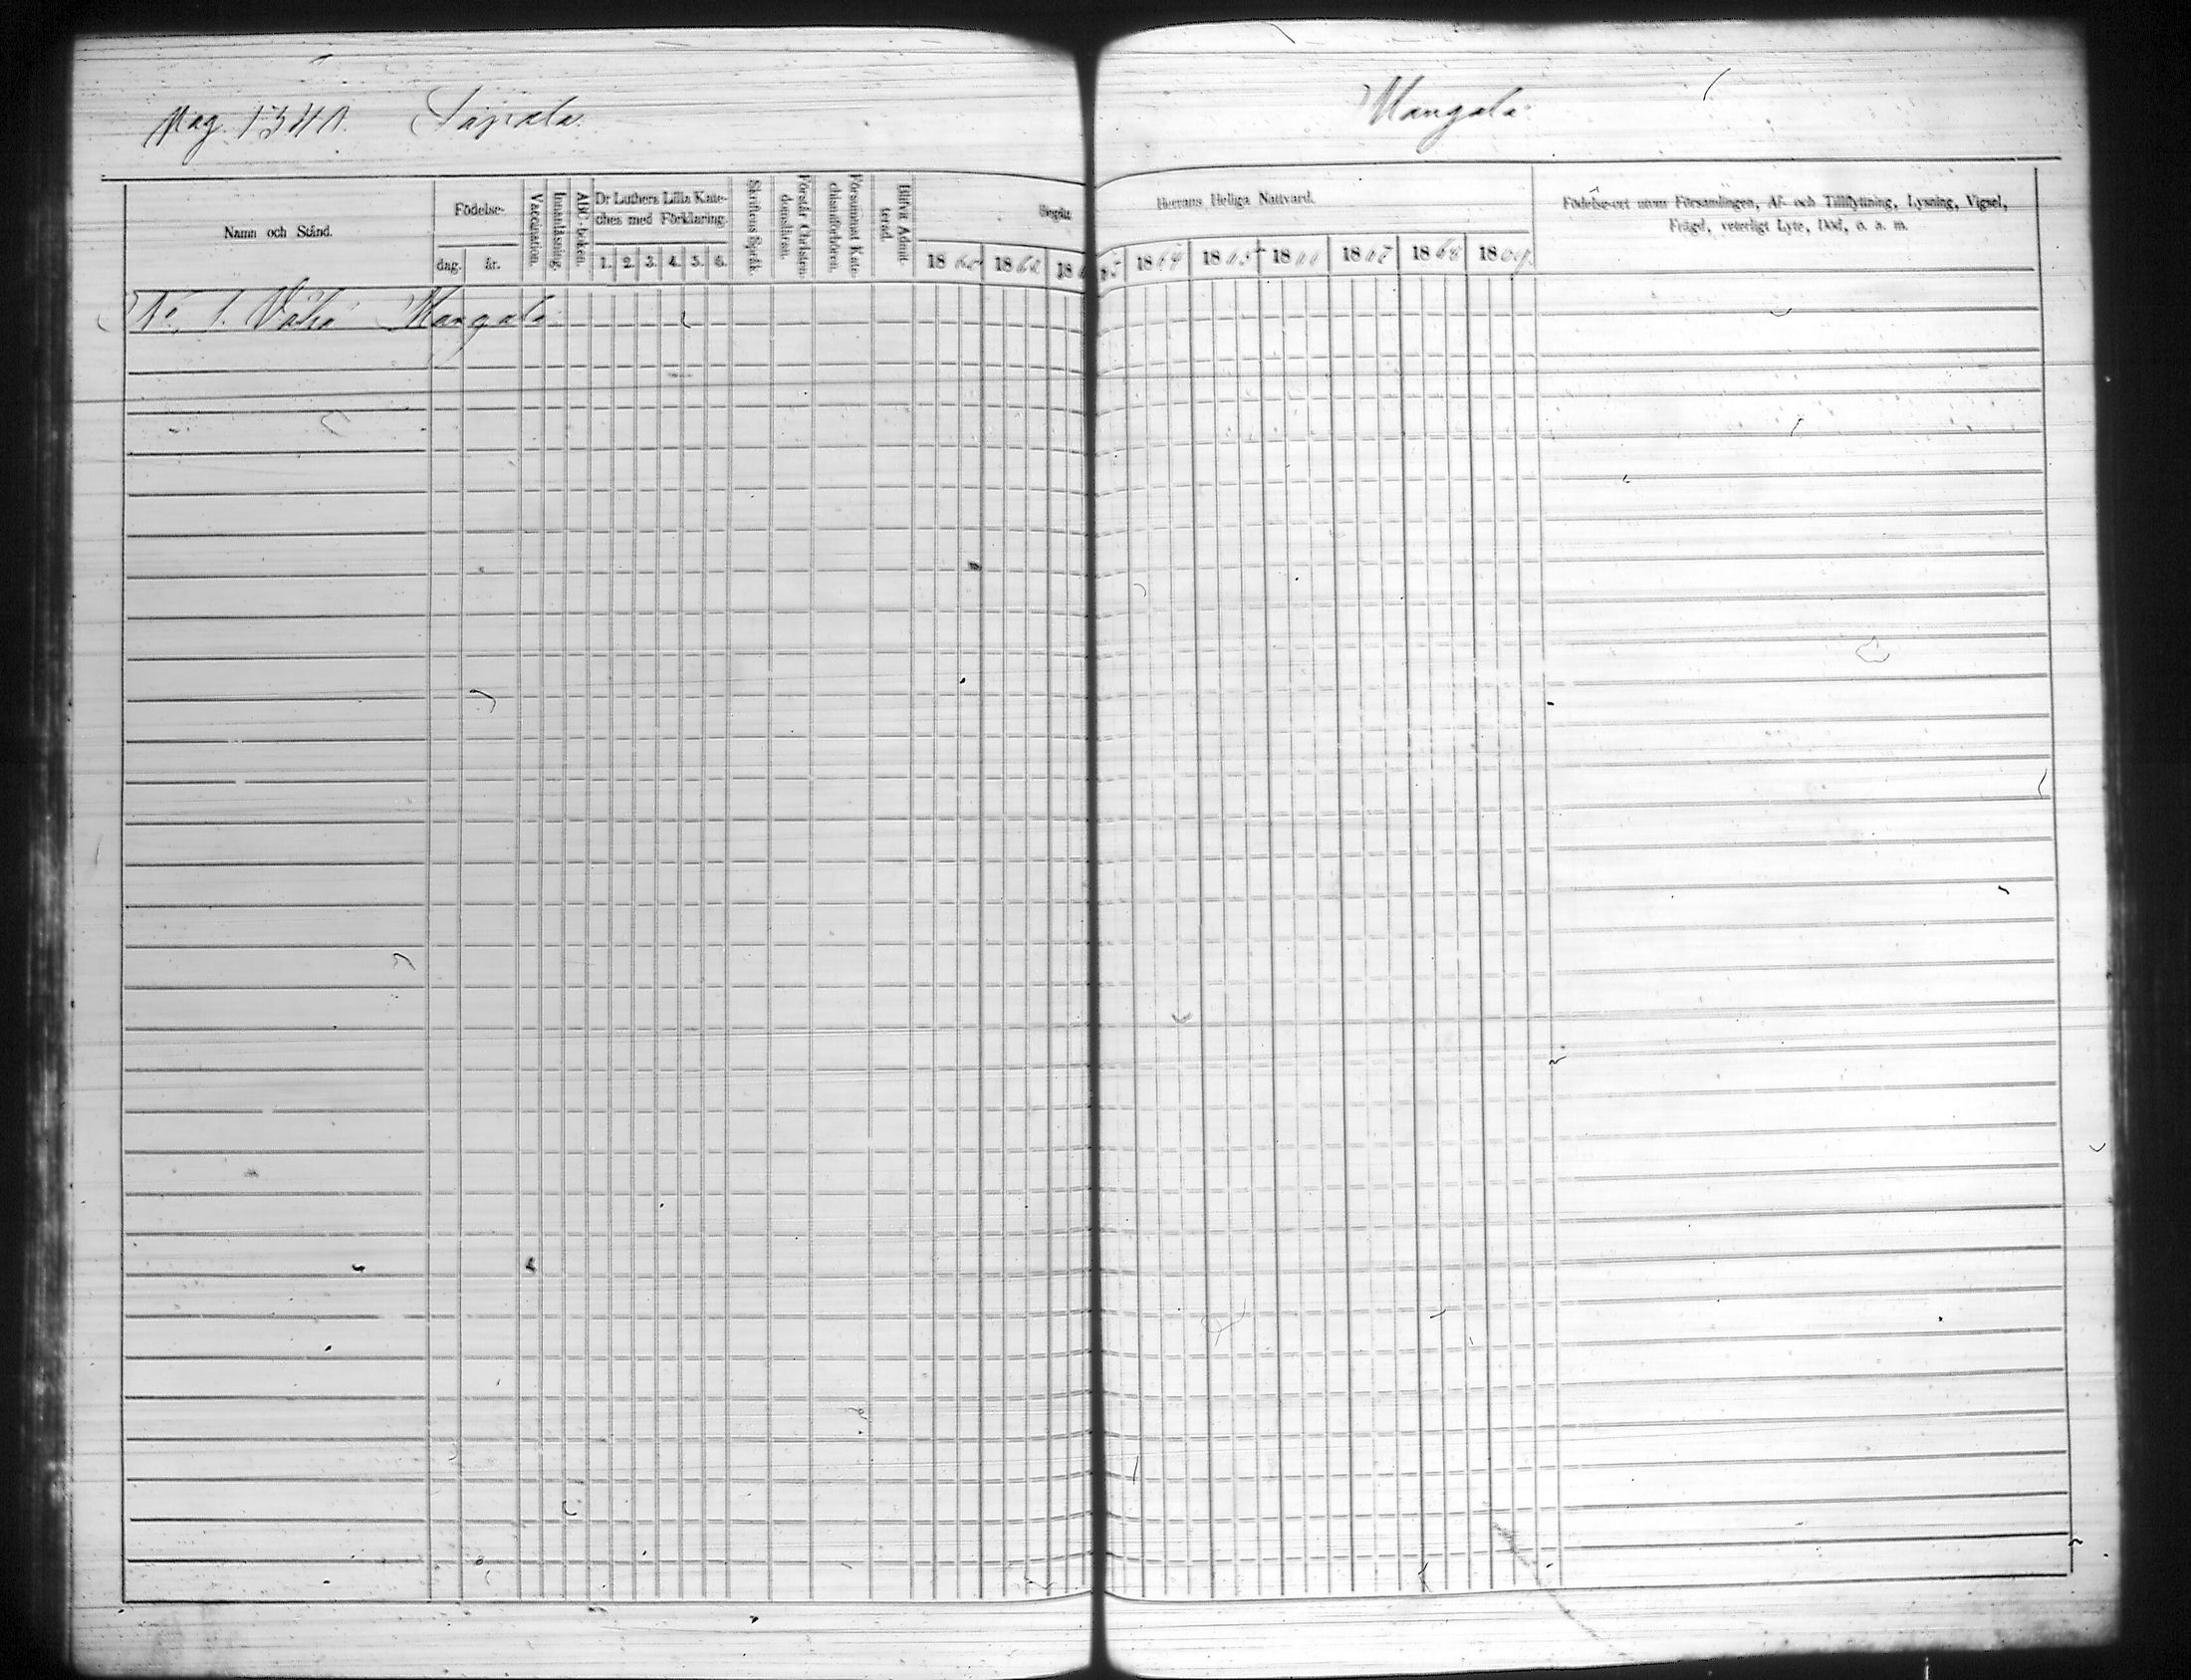 Pag. 1341. Säpilä. Mangala
Namn och Stånd.
Födelse-
dag. år.
Vaccination.
Innanläsning.
ABC-boken.
Dr Luthers Lilla Kate-
ches med Förklaring.
1. 2. 3. 4. 5. 6.
Skriftens Språk.
Förstår Christen-
domsläran.
Försummat Kate-
chismiförhören.
Blifvit Admit-
terad.
Begått Herrans Heliga Nattvard.
18 62 18 64 18 65 18 66 18 67 18 68 18 69
Födelse-ort utom Församlingen, Af- och Tillflyttning, Lysning, Vigsel,
Frägd, veterligt Lyte, Död, o. a. m.
No. 1. Vähä Mangala